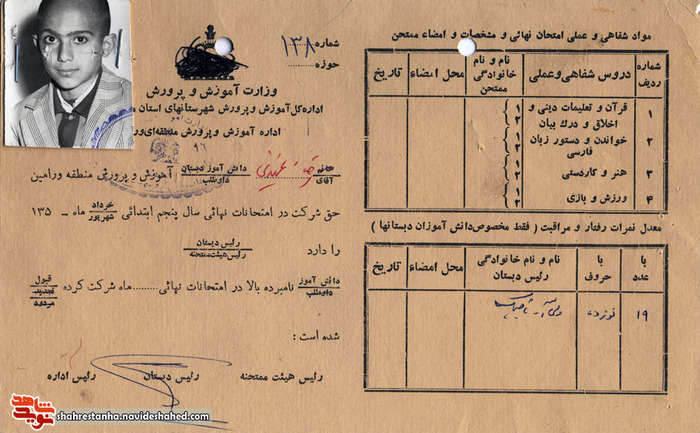 شماره ۱۳۸
حوزه
وزارت آموزش و پرورش
اداره کل آموزش و پرورش شهرستانهای استان
اداره آموزش و پرورش منطقه‌ای ور
۹۶
خانم
آقای
دانش آموز دبستان
داوطلب
آموزش و پرورش منطقه ورامین
حق شرکت در امتحانات نهائی سال پنجم ابتدائی خرداد
شهریور
ماه – ۱۳۵
را دارد
رئیس دبستان
رئیس هیئت ممتحنه
دانش آموز
داوطلب
نامبرده بالا در امتحانات نهائی.........ماه شرکت کرده
قبول
تجدید
مردود
شده است :
رئیس هیئت ممتحنه رئیس دبستان رئیس اداره
مواد شفاهی و عملی امتحان نهائی و مشخصات و امضاء ممتحن
شماره ردیف
دروس شفاهی و عملی
نام و نام خانوادگی ممتحن
محل امضاء
تاریخ
۱ قرآن و تعلیمات دینی و اخلاق و درك بیان ۱ ۲
۲ خواندن و دستور زبان فارسی ۱ ۲
۳ هنر و کاردستی ۱ ۲
۴ ورزش و بازی ۱ ۲
معدل نمرات رفتار و مراقبت ( فقط مخصوص دانش آموزان دبستانها )
با عدد
با حروف
نام و نام خانوادگی رئیس دبستان
محل امضاء
تاریخ
۱۹ نوزده
نوید شاهد
shahrestanha.navideshahed.com